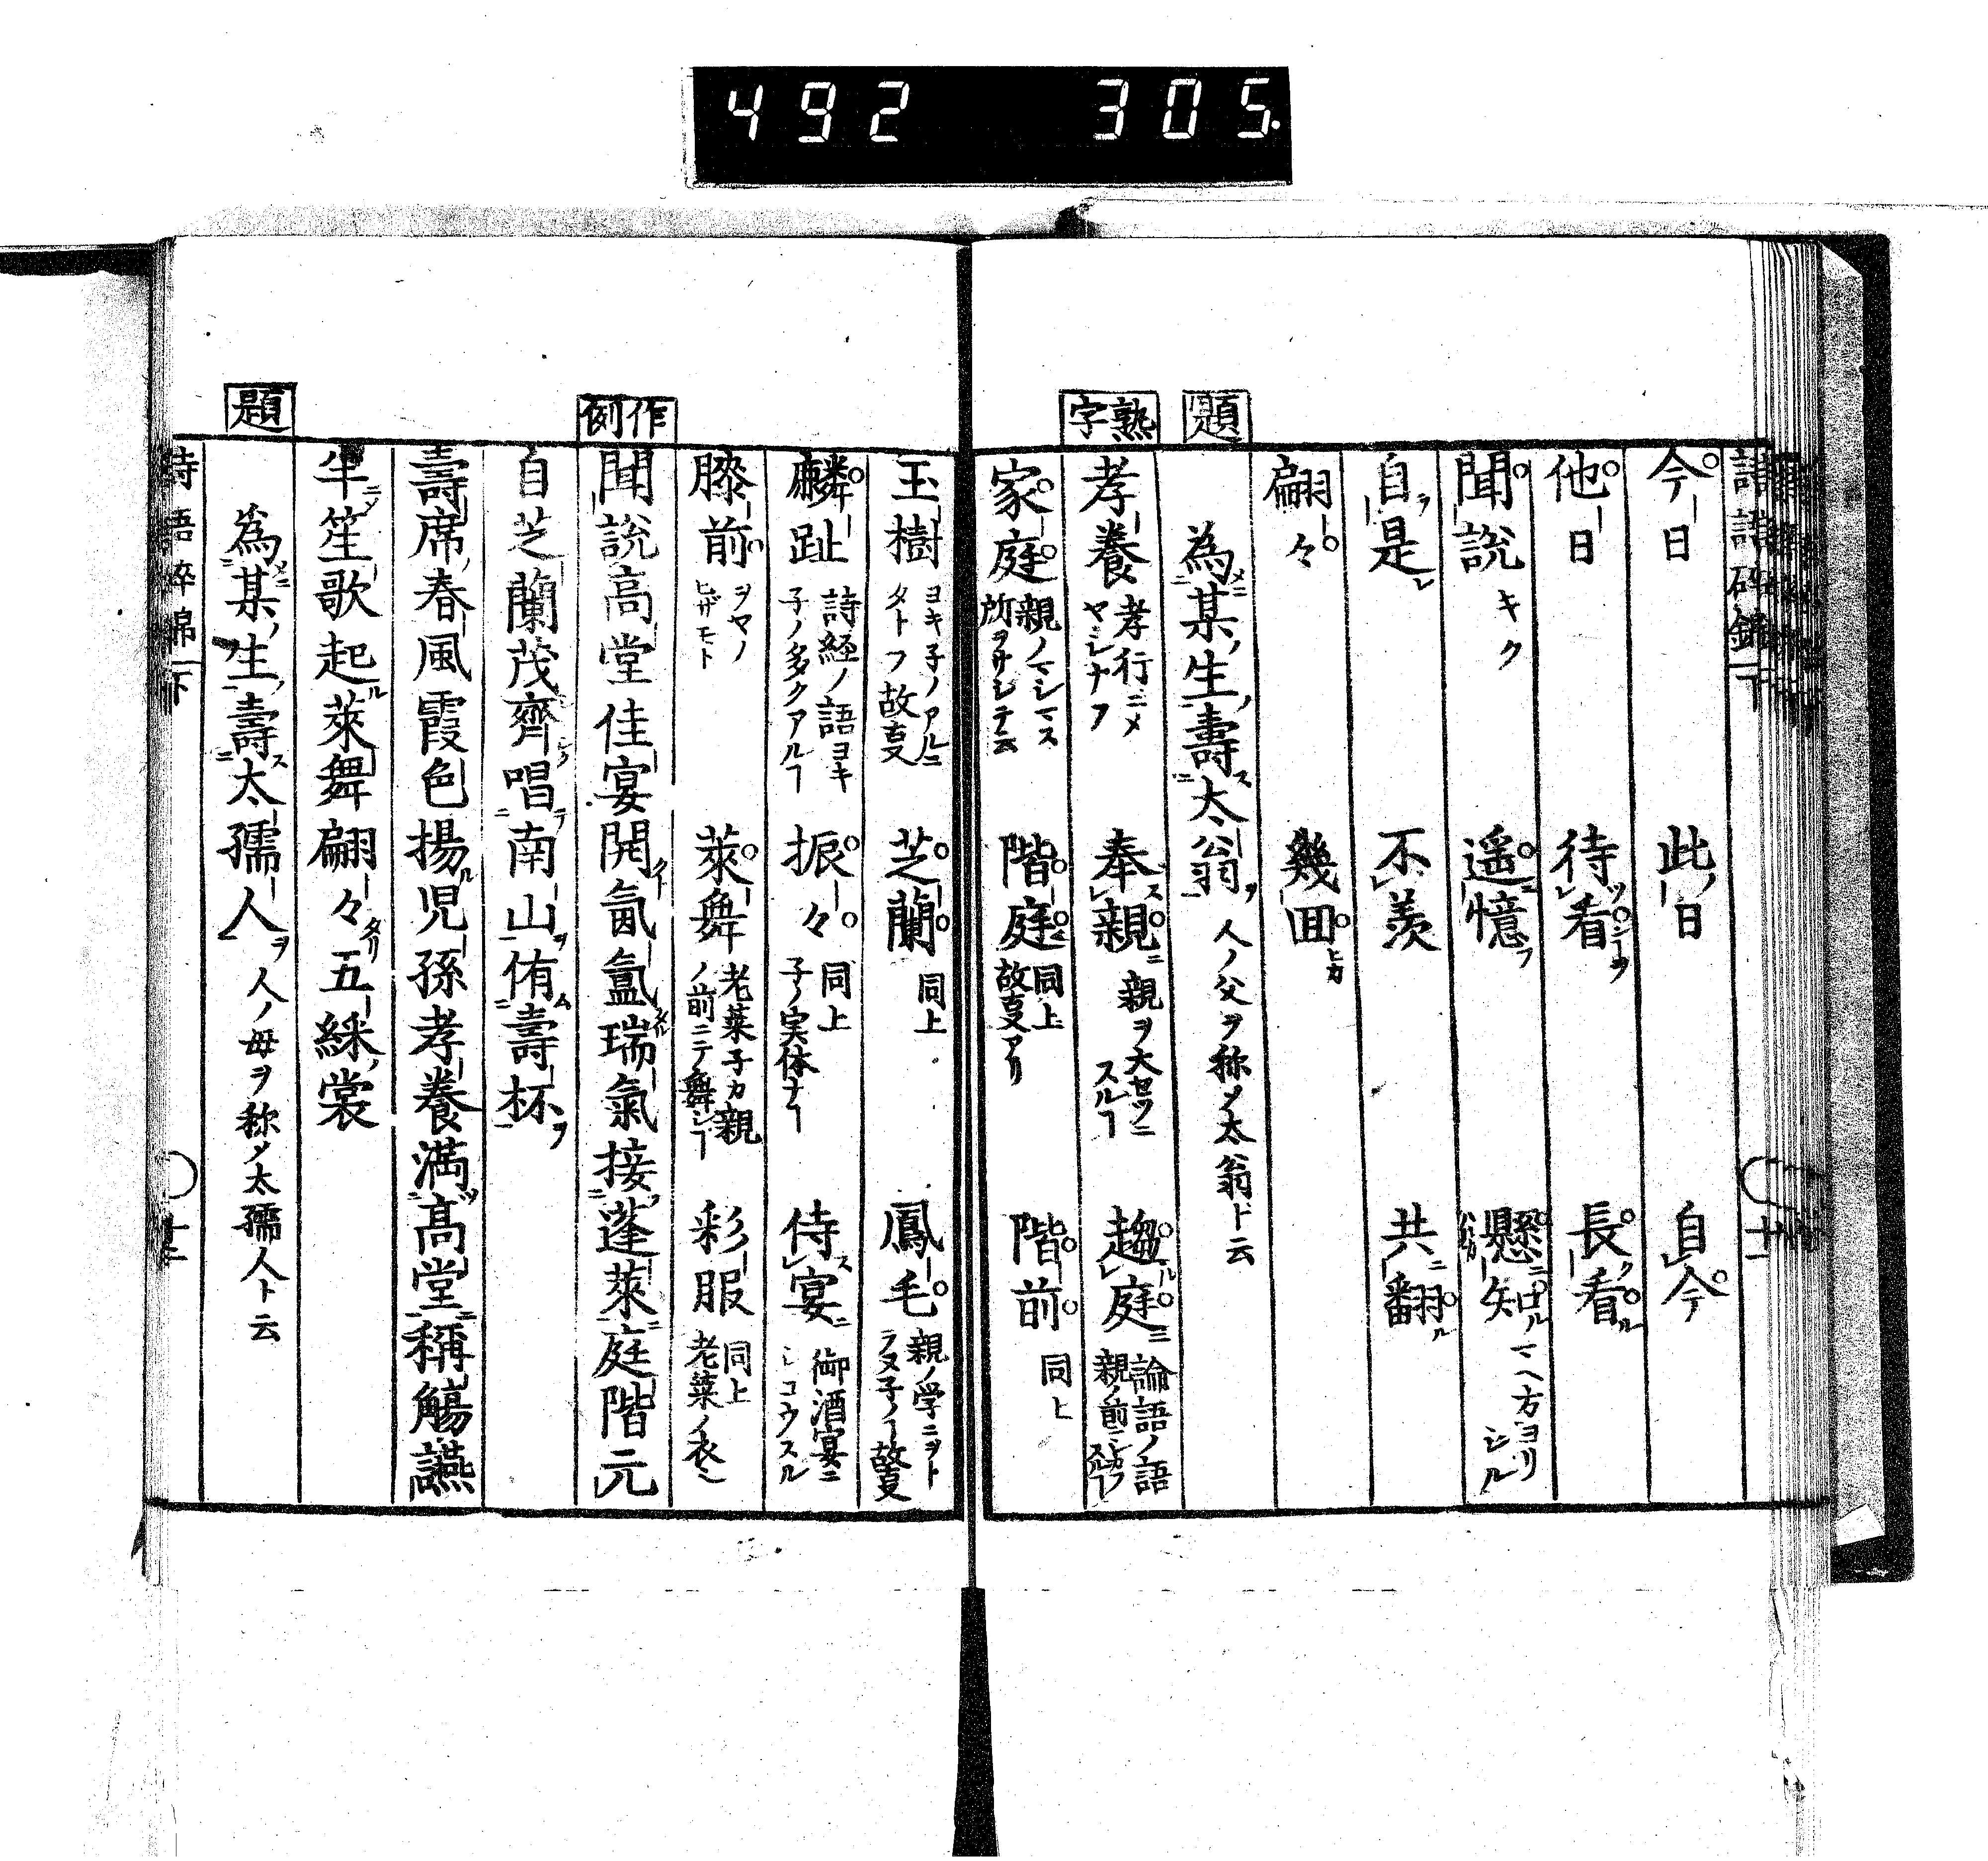 492 305.
今日 此日 自今
他日 待看 長看
聞説キク 遥憶 懸知マヘ方ヨリシル
自是 不羨 共翻
翩々 幾回
題
為某生壽太翁 人ノ父ヲ称メ太翁ト云
熟字
孝養孝行ニメヤシナフ 奉親親ヲ大セツニスルヿ 趨庭論語ノ語親ノ前
家庭親ノマシマス所ヲサシテ云 階庭同上故事アリ 階前同上
玉樹ヨキ子ノアルニタトフ故事 芝蘭同上 鳳毛親ノ学ニヲトラヌ子ノヿ故事
麟趾詩経ノ語ヨキ子ノ多クアルヿ 振々同上子ノ実体ナヿ 侍宴御酒宴ニシコウスル
膝前ヲヤノヒザモト 萊舞老萊子カ親ノ前ニテ舞シヿ 彩服同上老萊ノ衣
作例
聞説高堂佳宴開氤氳瑞氣接蓬萊庭階元
自芝蘭茂齊唱南山侑壽杯
壽席春風霞色揚児孫孝養満高堂稱觴讌
半笙歌起萊舞翩々五綵裳
題
為某生壽太孺人 人ノ母ヲ称メ太孺人ト云
詩語砕錦下